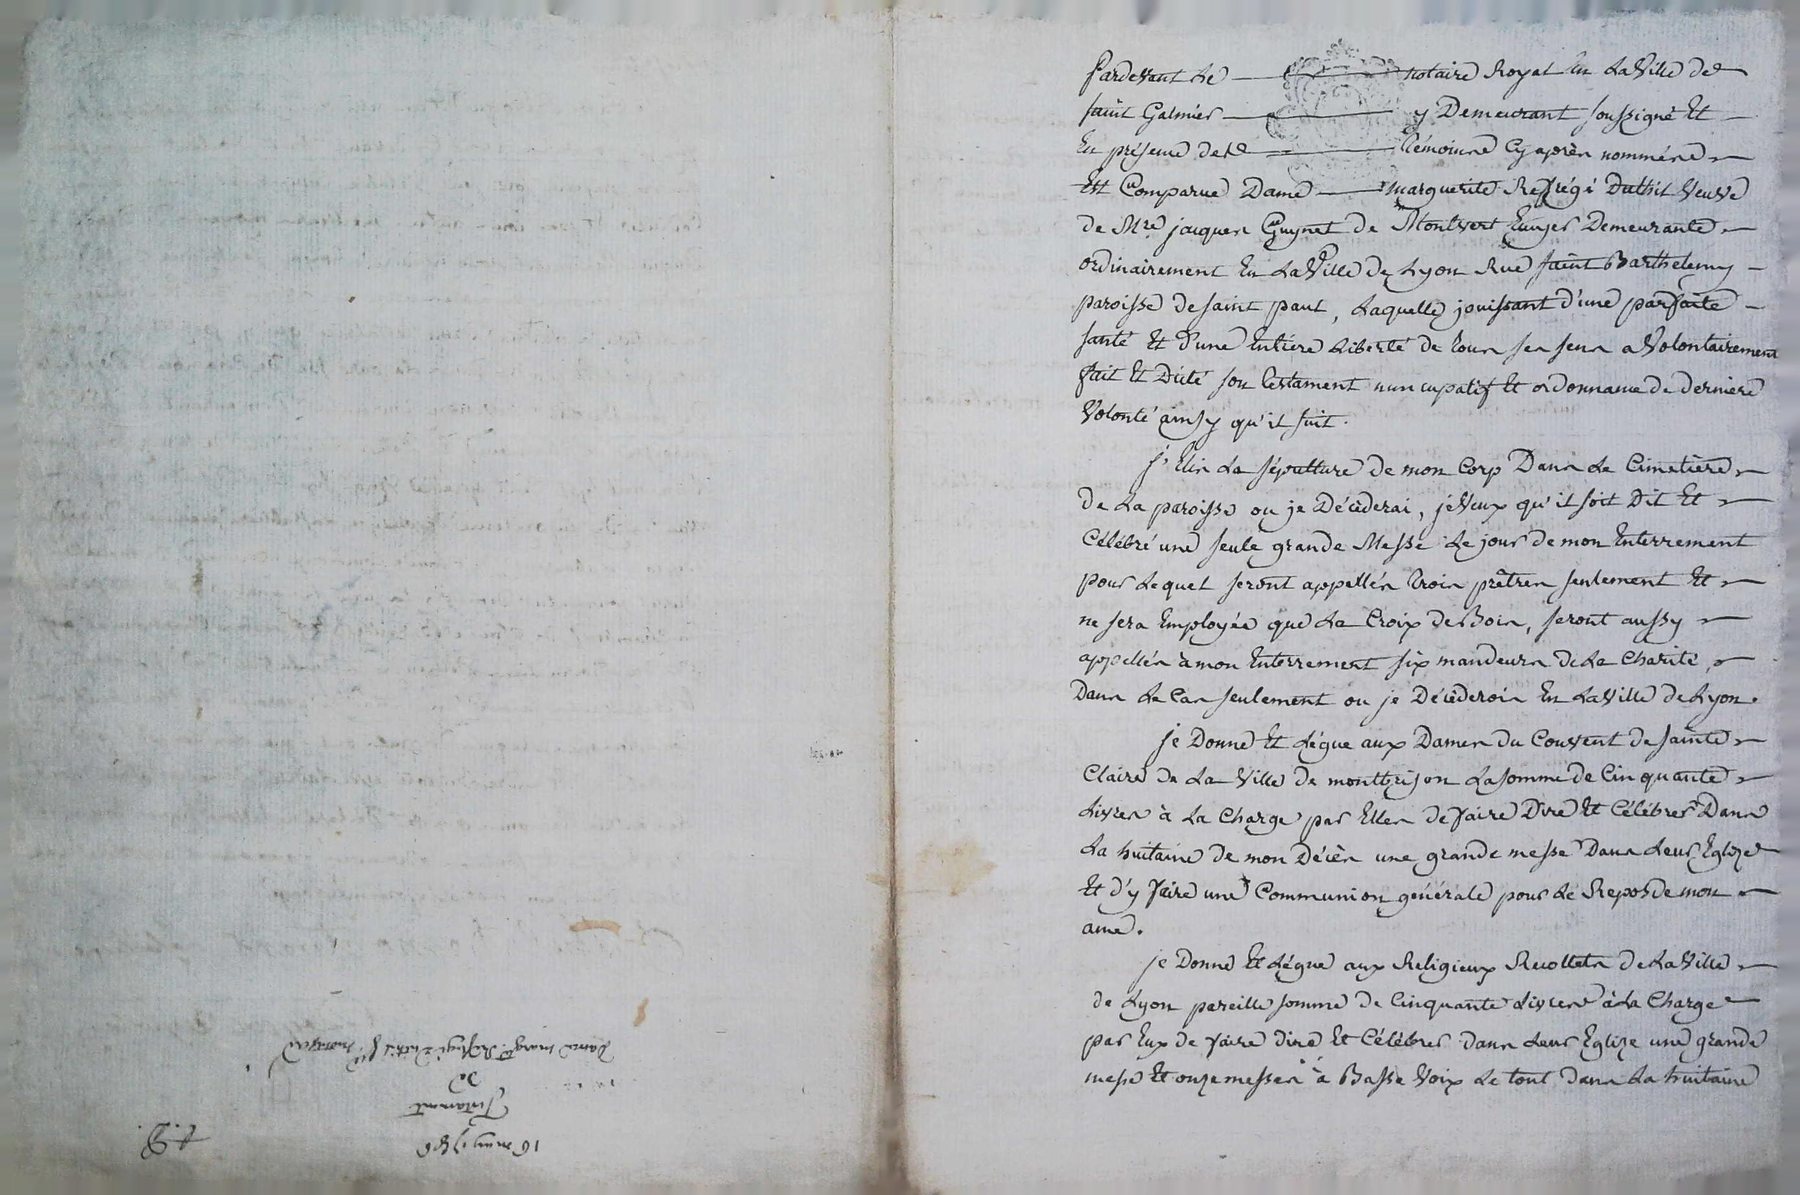 Pardevant Le notaire Royal En LaVille de
saint Galmier y Demeurant soussigné Et
En présence des témoins Cy après nommés
Est Comparue Dame marguerite Reffrégé Duthit Veuve
de Mre jacques Guynet de Montvert Ecuyer Demeurante
ordinairement En LaVille de Lyon Rue saint Barthelemy
paroisse de saint paul, Laquelle jouissant d'une parfaite
santé Et d'une Entiere Liberté de tous ses sens a Volontairement
fait Et Dicté son testament nuncupatif Et ordonnance de derniere
Volonté ainsy qu'il suit.
j'Elis La sépulture de mon Corp Dans Le Cimetière
de La paroisse ou je Décèderai, jeVeux qu'il soit Dit Et
Célébré une seule grande Messe Le jour de mon Enterrement
pour Lequel seront appellés trois prêtres seulement Et
ne sera Employée que La Croix de Bois, seront aussy
appellés à mon Enterrement six mandeurs de La Charité,
Dans Le Cas seulement ou je Décèderois En LaVille de Lyon.
je Donne Et Légue aux Dames du Couvent de sainte
Claire de La Ville de montbrison La somme de Cinquante
Livres à La Charge par Elles de faire Dire Et Célébrer Dans
La huitaine de mon Décès une grande messe Dans Leur Eglize
Et d'y faire une Communion générale pour Le Repos de mon
ame.
je Donne Et Légue aux Religieux Recollets de LaVille
de Lyon pareille somme de Cinquante Livres à La Charge
par Eux de faire dire Et Célébrer dans Leur Eglize une grande
messe Et onze messes à Basse Voix Le tout dans La huitaine
16 may
Testament
de
Dame